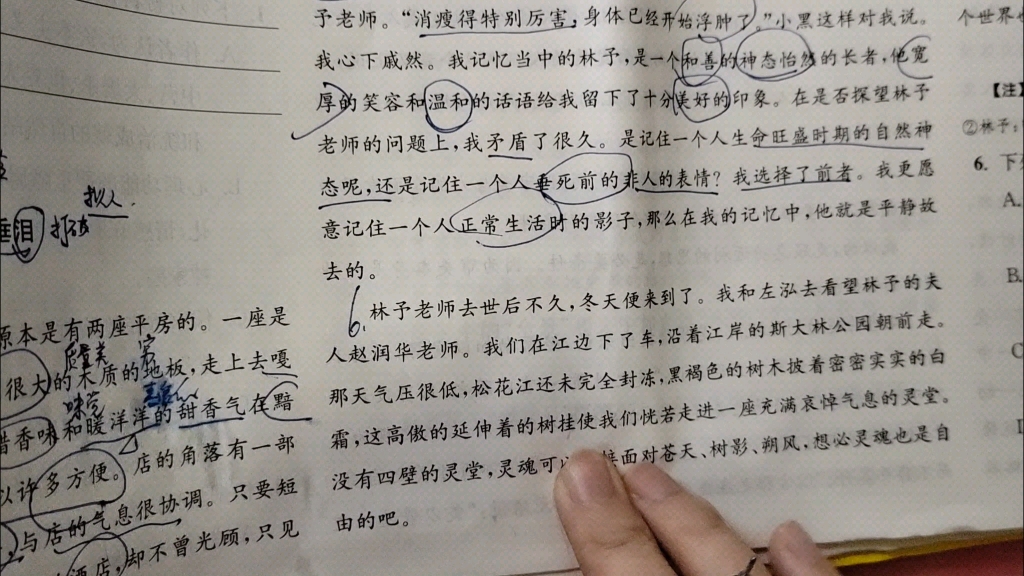 拟人.
泪 打破
原本是有两座平房的。一座是
质量美
很大的木质的地板，走上去嘎
味觉
香味和暖洋洋的甜香气在黯
以许多方便。店的角落有一部
与店的气息很协调。只要短
酒店，却不曾光顾，只见
予老师。“消瘦得特别厉害，身体已经开始浮肿了。”小黑这样对我说。
我心下戚然。我记忆当中的林予，是一个和善的神态怡然的长者，他宽
厚的笑容和温和的话语给我留下了十分美好的印象。在是否探望林予
老师的问题上，我矛盾了很久。是记住一个人生命旺盛时期的自然神
态呢，还是记住一个人垂死前的非人的表情？我选择了前者。我更愿
意记住一个人正常生活时的影子，那么在我的记忆中，他就是平静故
去的。
6.
林予老师去世后不久，冬天便来到了。我和左泓去看望林予的夫
人赵润华老师。我们在江边下了车，沿着江岸的斯大林公园朝前走。
那天气压很低，松花江还未完全封冻，黑褐色的树木披着密密实实的白
霜，这高傲的延伸着的树挂使我们恍若走进一座充满哀悼气息的灵堂。
没有四壁的灵堂，灵魂可面对苍天、树影、朔风，想必灵魂也是自
由的吧。
个世界也
【注】
②林予：
6. 下
A.
B.
C